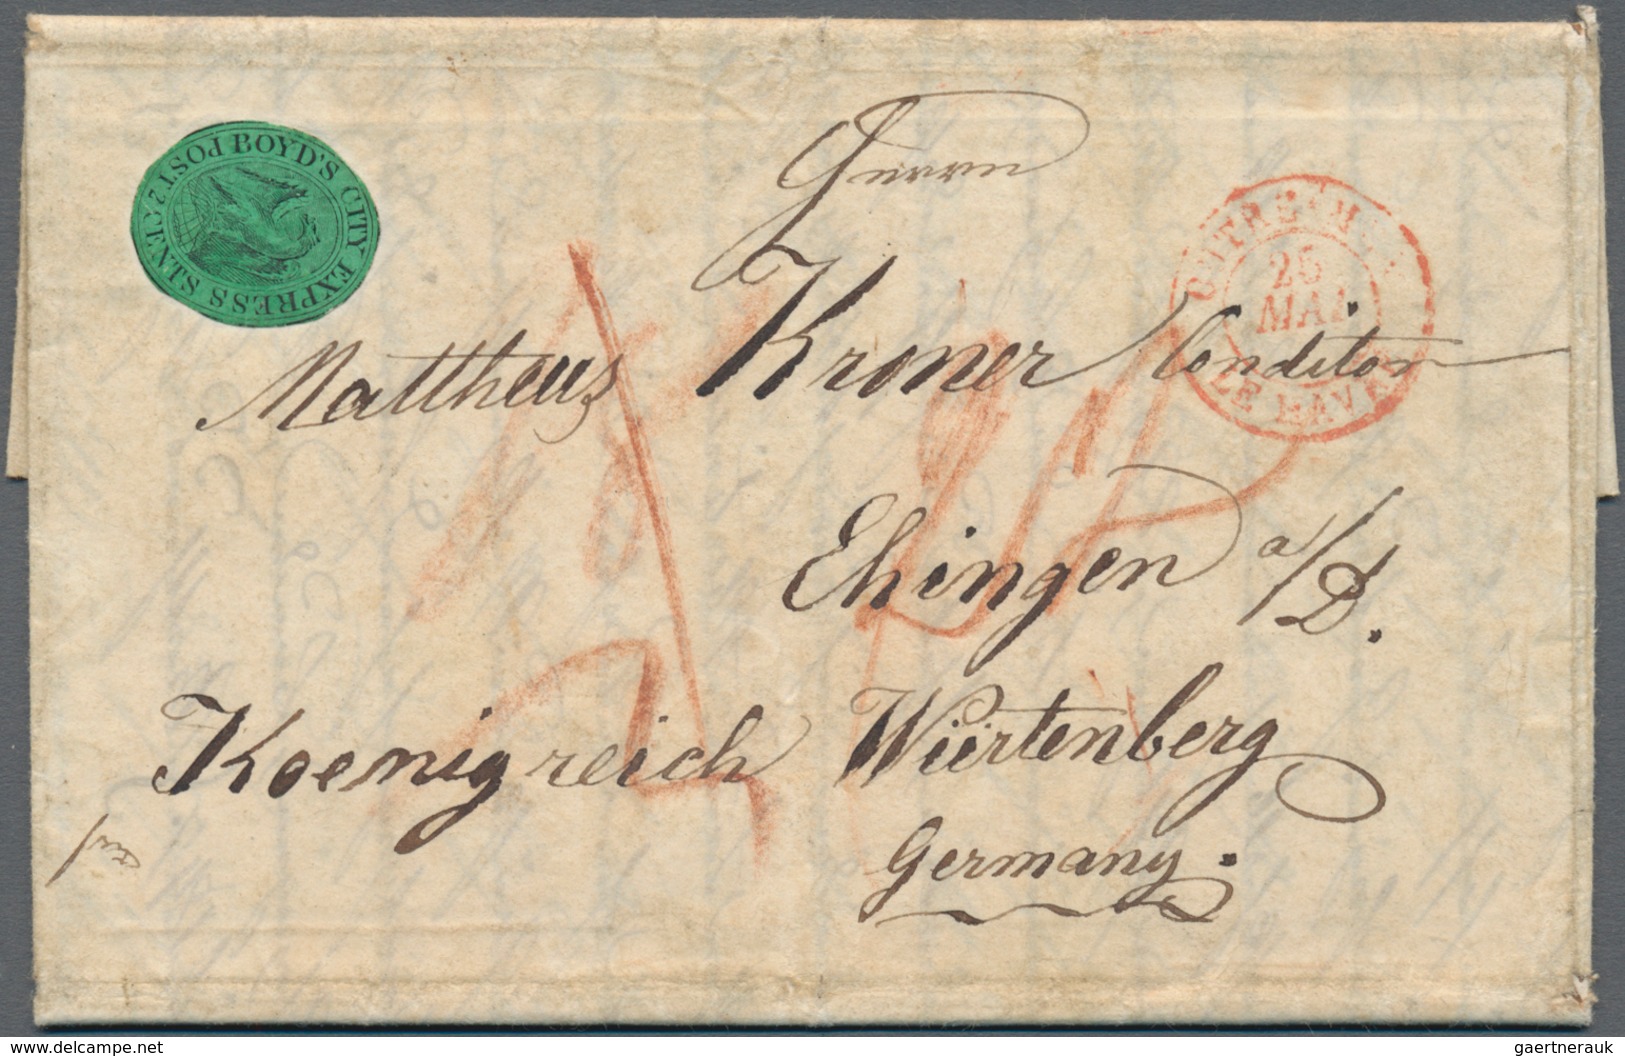 BOYD'S CITY EXPRESS POST 2 CENTS
Herrn
OUTRE-MER
25
MAI
LE HAVRE
Mattheus Kroner Conditor
Ehingen a/D.
Koenigreich Würtenberg
Germany.
delcampe.net
gaertnerauk